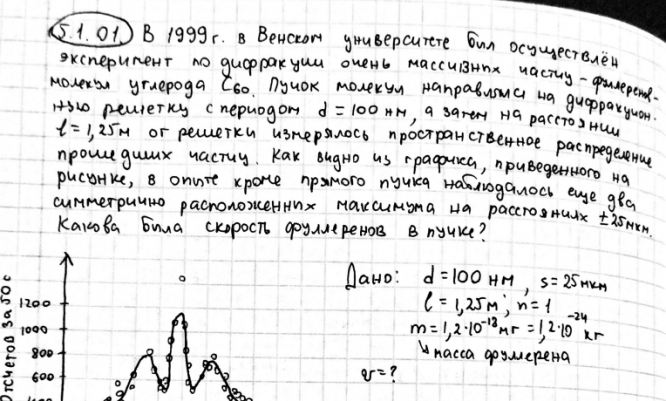 5.1.01. В 1999 г. в Венском университете был осуществлён
эксперимент по дифракции очень массивных частиц - фуллеренов -
молекул углерода C60. Пучок молекул направлялся на дифракцион-
ную решетку с периодом d = 100 нм, а затем на расстоянии
l = 1,25 м от решетки измерялось пространственное распределение
прошедших частиц. Как видно из графика, приведенного на
рисунке, в опыте кроме прямого пучка наблюдалось еще два
симметрично расположенных максимума на расстояниях ± 25 мкм.
Какова была скорость фуллеренов в пучке?
Дано: d = 100 нм, s = 25 мкм
l = 1,25 м; n = 1
m = 1,2·10⁻¹⁸ мг = 1,2·10⁻²⁴ кг
масса фуллерена
v = ?
Отсчетов за 50 с
1200
1000
800
600